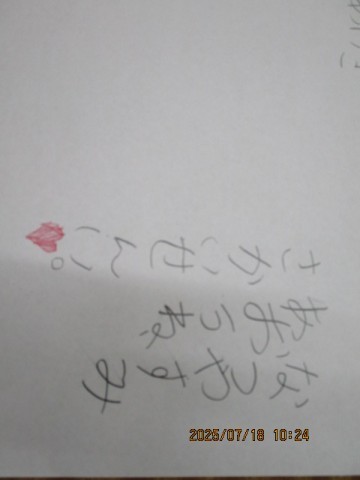 なつやすみ
あおうね、
さかいせんい。
2025/07/18 10:24